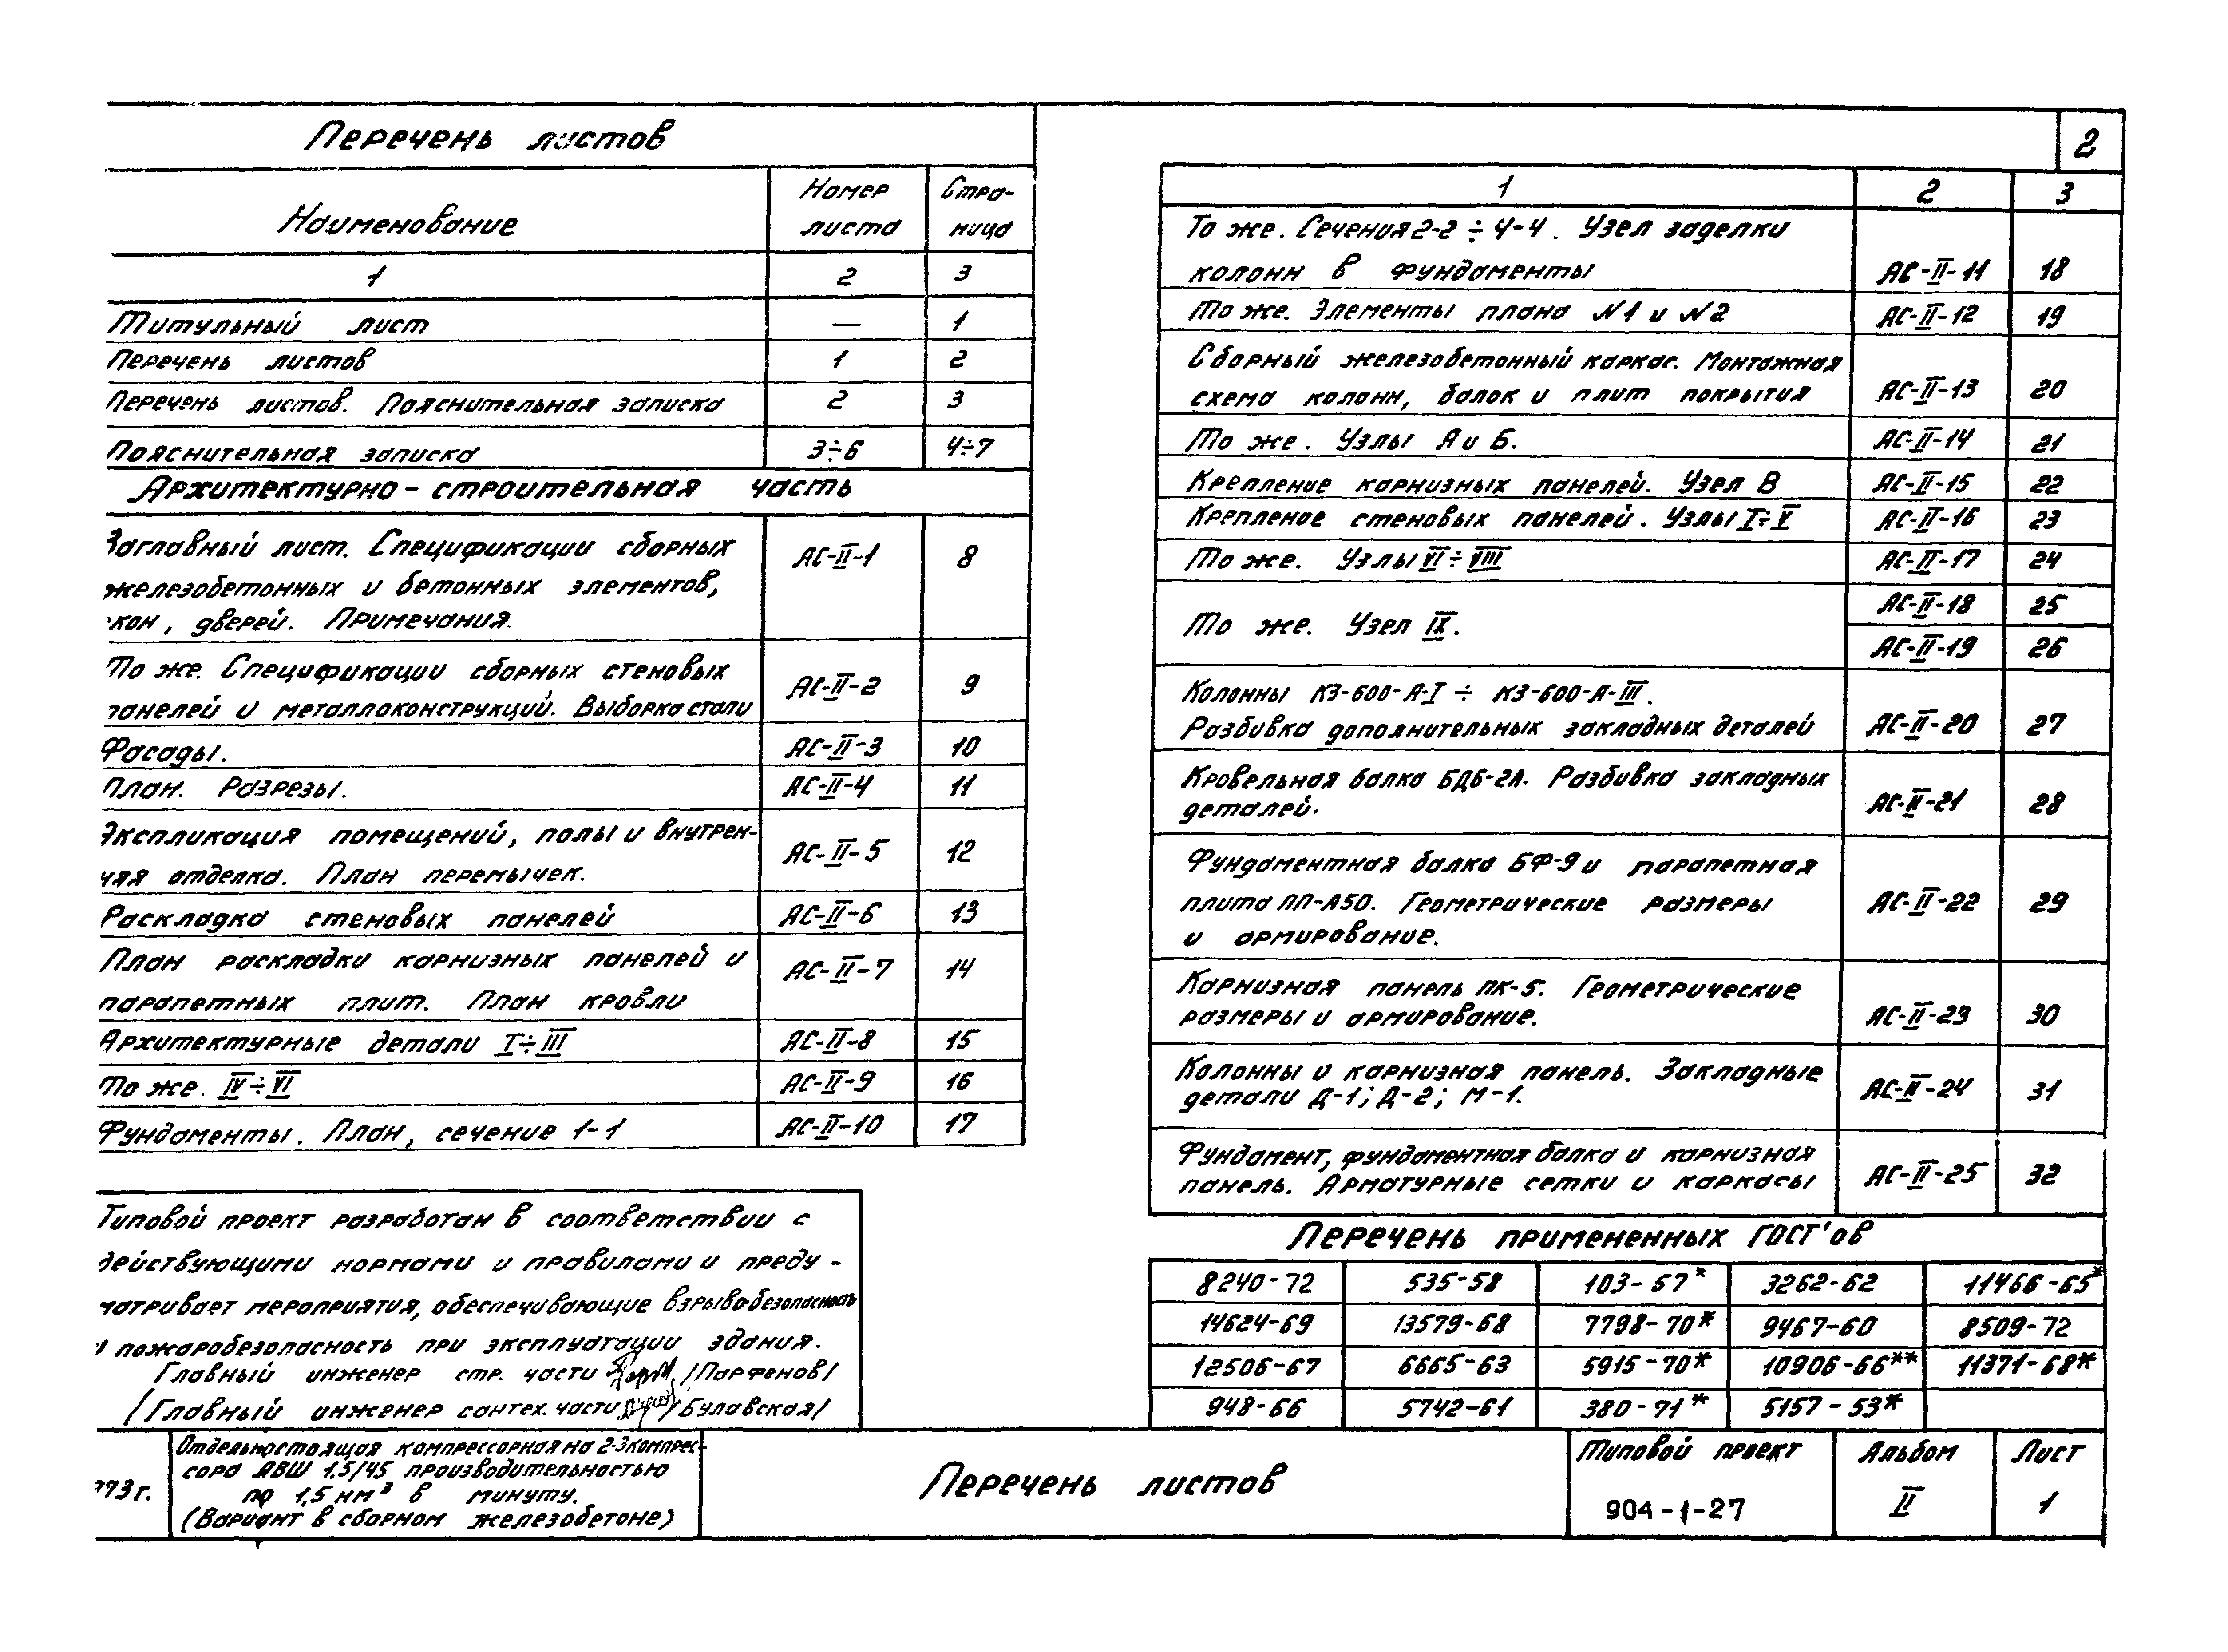 Перечень листов
Наименование
Номер листа
Стра-ница
1 2 3
Титульный лист — 1
Перечень листов 1 2
Перечень листов. Пояснительная записка 2 3
Пояснительная записка 3÷6 4÷7
Архитектурно-строительная часть
Заглавный лист. Спецификации сборных АС-II-1 8
железобетонных и бетонных элементов,
кон, дверей. Примечания.
То же. Спецификации сборных стеновых
панелей и металлоконструкций. Выборка стали АС-II-2 9
Фасады. АС-II-3 10
План. Разрезы. АС-II-4 11
Экспликация помещений, полы и внутрен-
няя отделка. План перемычек. АС-II-5 12
Раскладка стеновых панелей АС-II-6 13
План раскладки карнизных панелей и АС-II-7 14
парапетных плит. План кровли
Архитектурные детали I÷III АС-II-8 15
То же. IV÷VI АС-II-9 16
Фундаменты. План, сечение 1-1 АС-II-10 17
Типовой проект разработан в соответствии с
действующими нормами и правилами и преду-
матривает мероприятия, обеспечивающие взрывобезопасность
и пожаробезопасность при эксплуатации здания.
Главный инженер стр. части /Парфенов/
/Главный инженер сантех. части /Булавская/
2
1 2 3
То же. Сечения 2-2÷4-4. Узел заделки
колонн в фундаменты АС-II-11 18
То же. Элементы плана N1 и N2 АС-II-12 19
Сборный железобетонный каркас. Монтажная
схема колонн, балок и плит покрытия АС-II-13 20
То же. Узлы А и Б. АС-II-14 21
Крепление карнизных панелей. Узел В АС-II-15 22
Крепление стеновых панелей. Узлы I÷V АС-II-16 23
То же. Узлы VI÷VIII АС-II-17 24
То же. Узел IX. АС-II-18 25
АС-II-19 26
Колонны КЗ-600-А-I ÷ КЗ-600-А-III.
Разбивка дополнительных закладных деталей АС-II-20 27
Кровельная балка БДБ-2А. Разбивка закладных
деталей. АС-II-21 28
Фундаментная балка БФ-9 и парапетная
плита ПП-А50. Геометрические размеры АС-II-22 29
и армирование.
Карнизная панель ПК-5. Геометрические
размеры и армирование. АС-II-23 30
Колонны и карнизная панель. Закладные
детали Д-1; Д-2; М-1. АС-II-24 31
Фундамент, фундаментная балка и карнизная
панель. Арматурные сетки и каркасы АС-II-25 32
Перечень примененных ГОСТ'ов
8240-72 535-58 103-57* 3262-62 11466-65*
14624-69 13579-68 7798-70* 9467-60 8509-72
12506-67 6665-63 5915-70* 10906-66** 11371-68*
948-66 5742-61 380-71* 5157-53*
973г.
Отдельностоящая компрессорная на 2-3 компрес-
сора АВШ 1,5/45 производительностью
по 1,5 нм³ в минуту.
(Вариант в сборном железобетоне)
Перечень листов
Типовой проект
904-1-27
Альбом
II
Лист
1